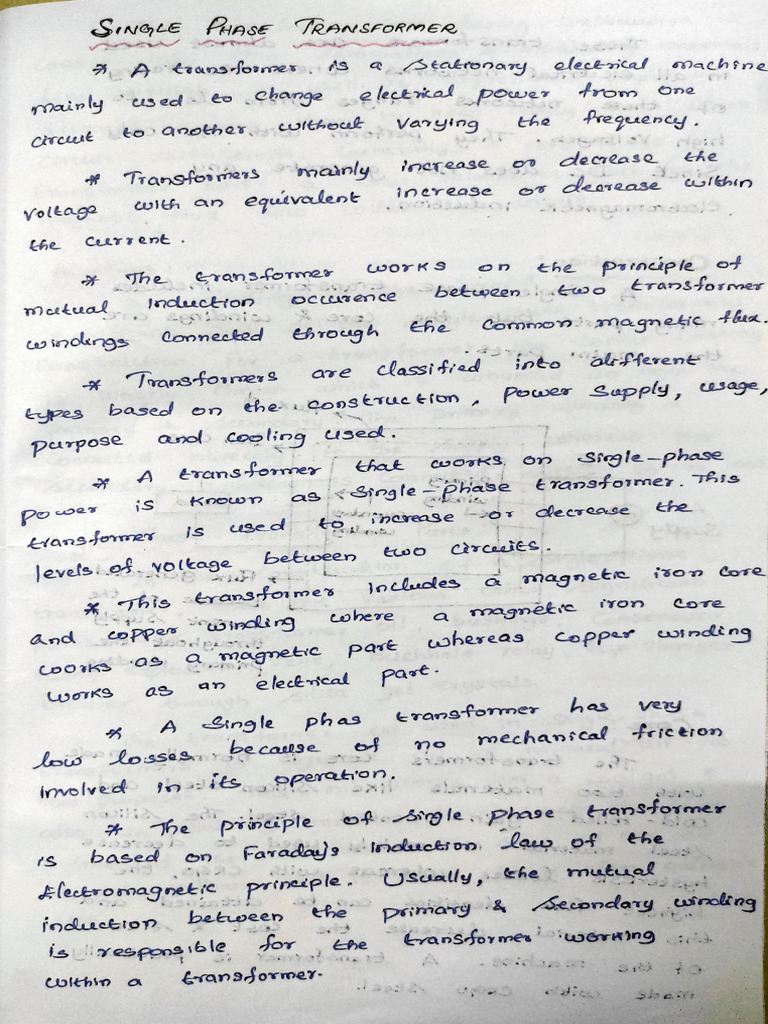 SINGLE PHASE TRANSFORMER
* A transformer is a stationary electrical machine
mainly used to change electrical power from one
circuit to another without varying the frequency.
* Transformers mainly increase or decrease the
voltage with an equivalent increase or decrease within
the current.
* The transformer works on the principle of
mutual induction occurence between two transformer
windings connected through the common magnetic flux.
* Transformers are classified into different
types based on the construction, power supply, usage,
purpose and cooling used.
* A transformer that works on single-phase
power is known as single-phase transformer. This
transformer is used to increase or decrease the
levels of voltage between two circuits.
* This transformer includes a magnetic iron core
and copper winding where a magnetic iron core
works as a magnetic part whereas copper winding
works as an electrical part.
* A single phas transformer has very
low losses because of no mechanical friction
involved in its operation.
* The principle of single phase transformer
is based on Faraday's induction law of the
Electromagnetic principle. Usually, the mutual
induction between the primary & secondary winding
is responsible for the transformer working
within a transformer.